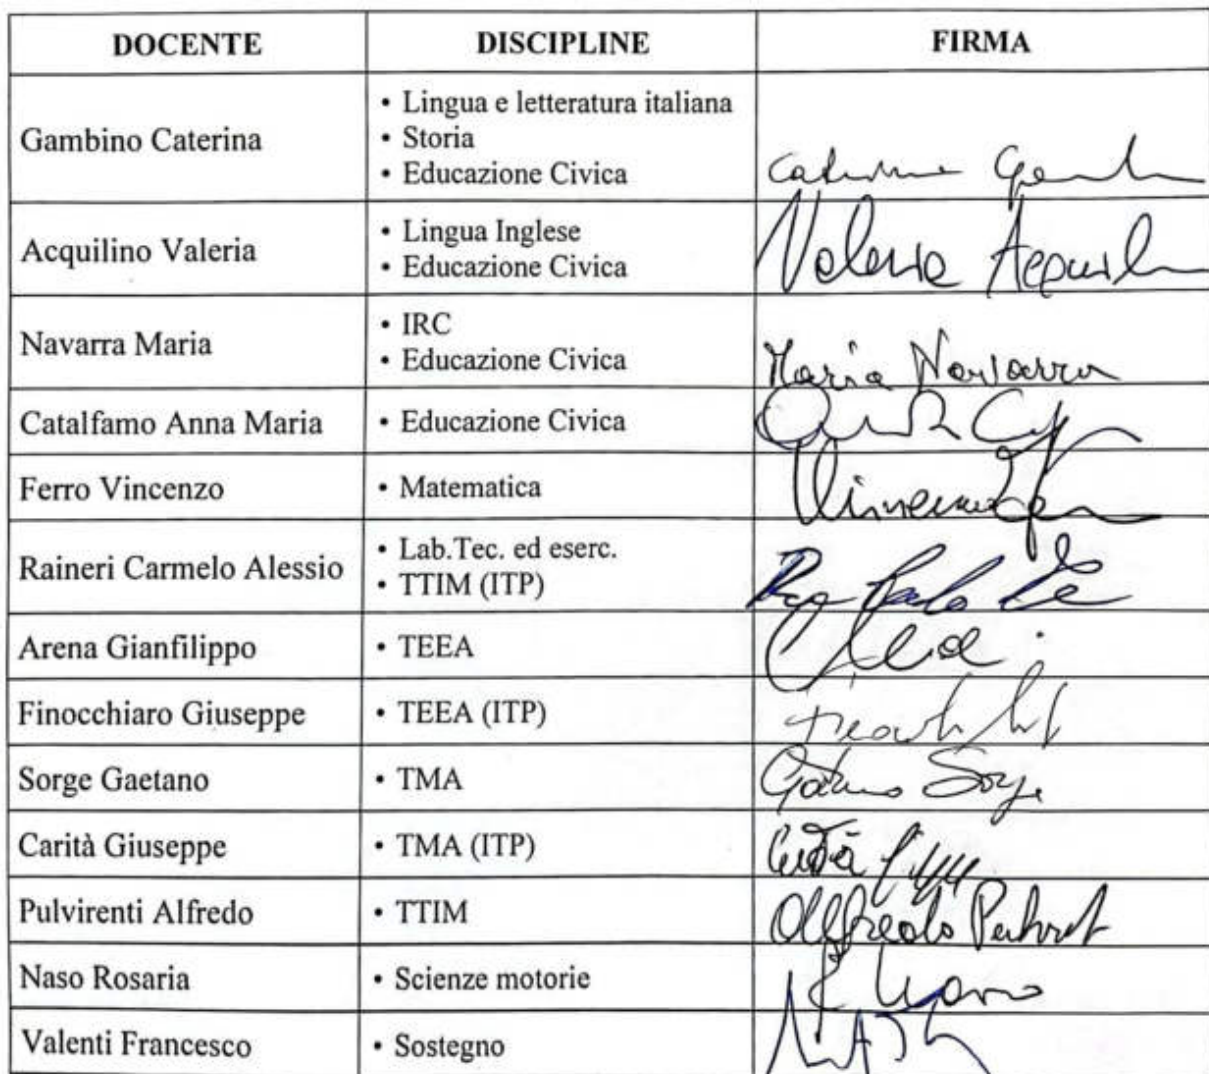 DOCENTE DISCIPLINE FIRMA
Gambino Caterina
• Lingua e letteratura italiana
• Storia
• Educazione Civica
Acquilino Valeria
• Lingua Inglese
• Educazione Civica
Valeria
Navarra Maria
• IRC
• Educazione Civica
Maria Navarra
Catalfamo Anna Maria • Educazione Civica
Ferro Vincenzo • Matematica
Raineri Carmelo Alessio
• Lab.Tec. ed eserc.
• TTIM (ITP)
Arena Gianfilippo • TEEA
Finocchiaro Giuseppe • TEEA (ITP)
Sorge Gaetano • TMA
Carità Giuseppe • TMA (ITP)
Pulvirenti Alfredo • TTIM
Alfredo
Naso Rosaria • Scienze motorie
Valenti Francesco • Sostegno